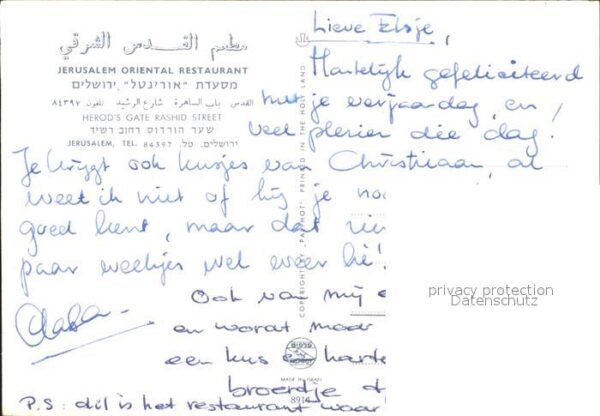 مطعم القدس الشرقي
JERUSALEM ORIENTAL RESTAURANT
מסעדת "אוריינטל", ירושלים
القدس باب الساهرة شارع الرشيد تلفون ٨٤٣٩٧
HEROD'S GATE RASHID STREET
שער הורדוס רחוב רשיד
JERUSALEM, TEL. 84397 ירושלים. טל.
Lieve Elsje,
Hartelijk gefeliciteerd
met je verjaardag, en
veel plezier die dag!
Je krijgt ook kusjes van Christiaan, al
weet ik niet of hij je no
goed kent, maar dat
paar weekjes wel weer hé!
Ook van mij e
en wordt maar
een kus en harte
broertje
P.S: dit is het restaurant waar
COPYRIGHT BY "PALPHOT" PRINTED IN THE HOLY LAND
MADE IN ISRAEL
8914
privacy protection
Datenschutz